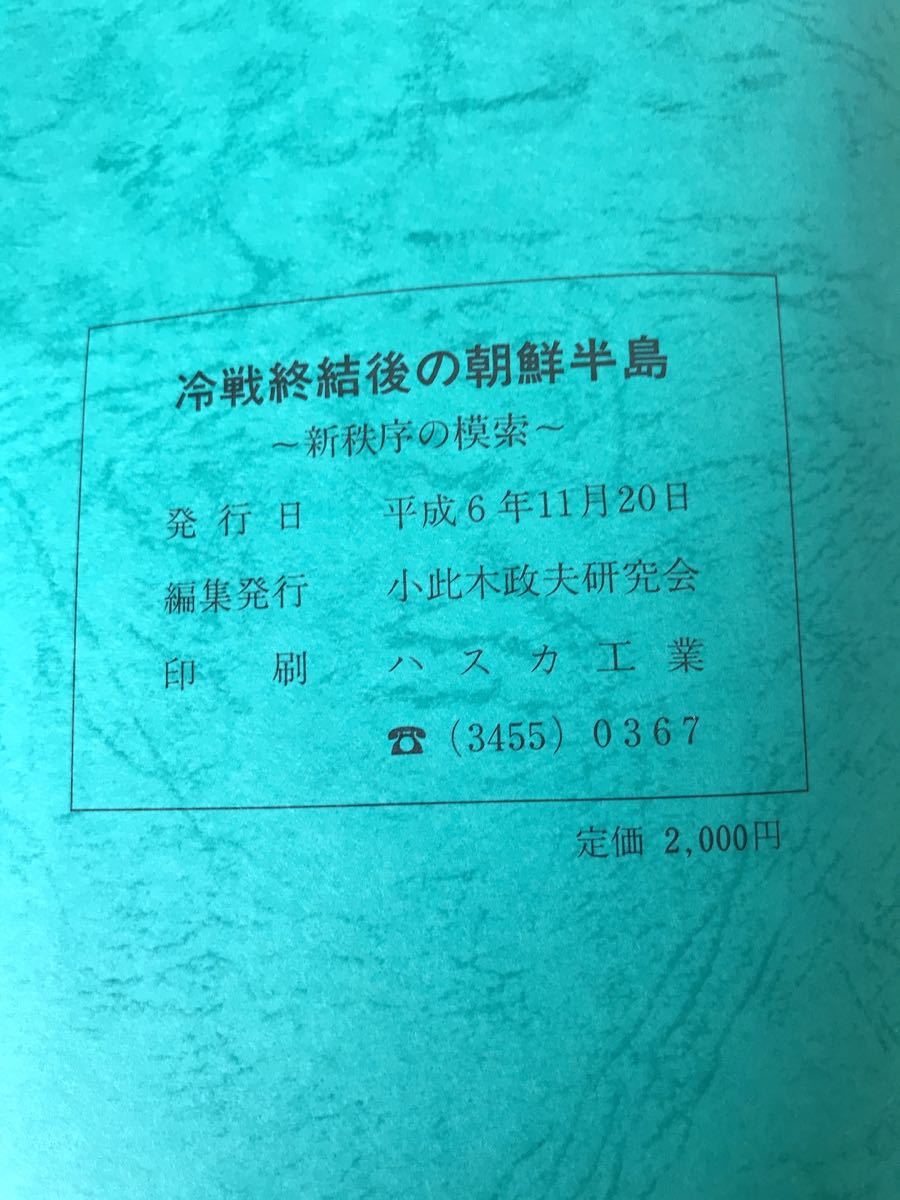 冷戦終結後の朝鮮半島
～新秩序の模索～
発行日 平成6年11月20日
編集発行 小此木政夫研究会
印刷 ハスカ工業
☎ (3455) 0367
定価 2,000円